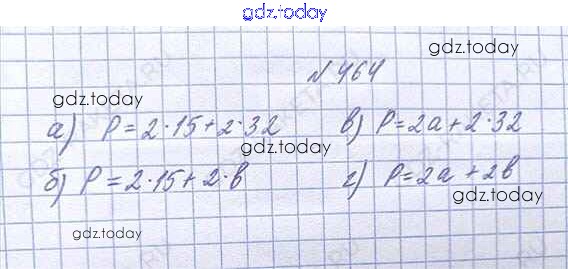 gdz.today
gdz.today
№464
gdz.today
а) P=2·15+2·32
в) P=2a+2·32
gdz.today
б) P=2·15+2·в
г) P=2a+2в
gdz.today
gdz.today